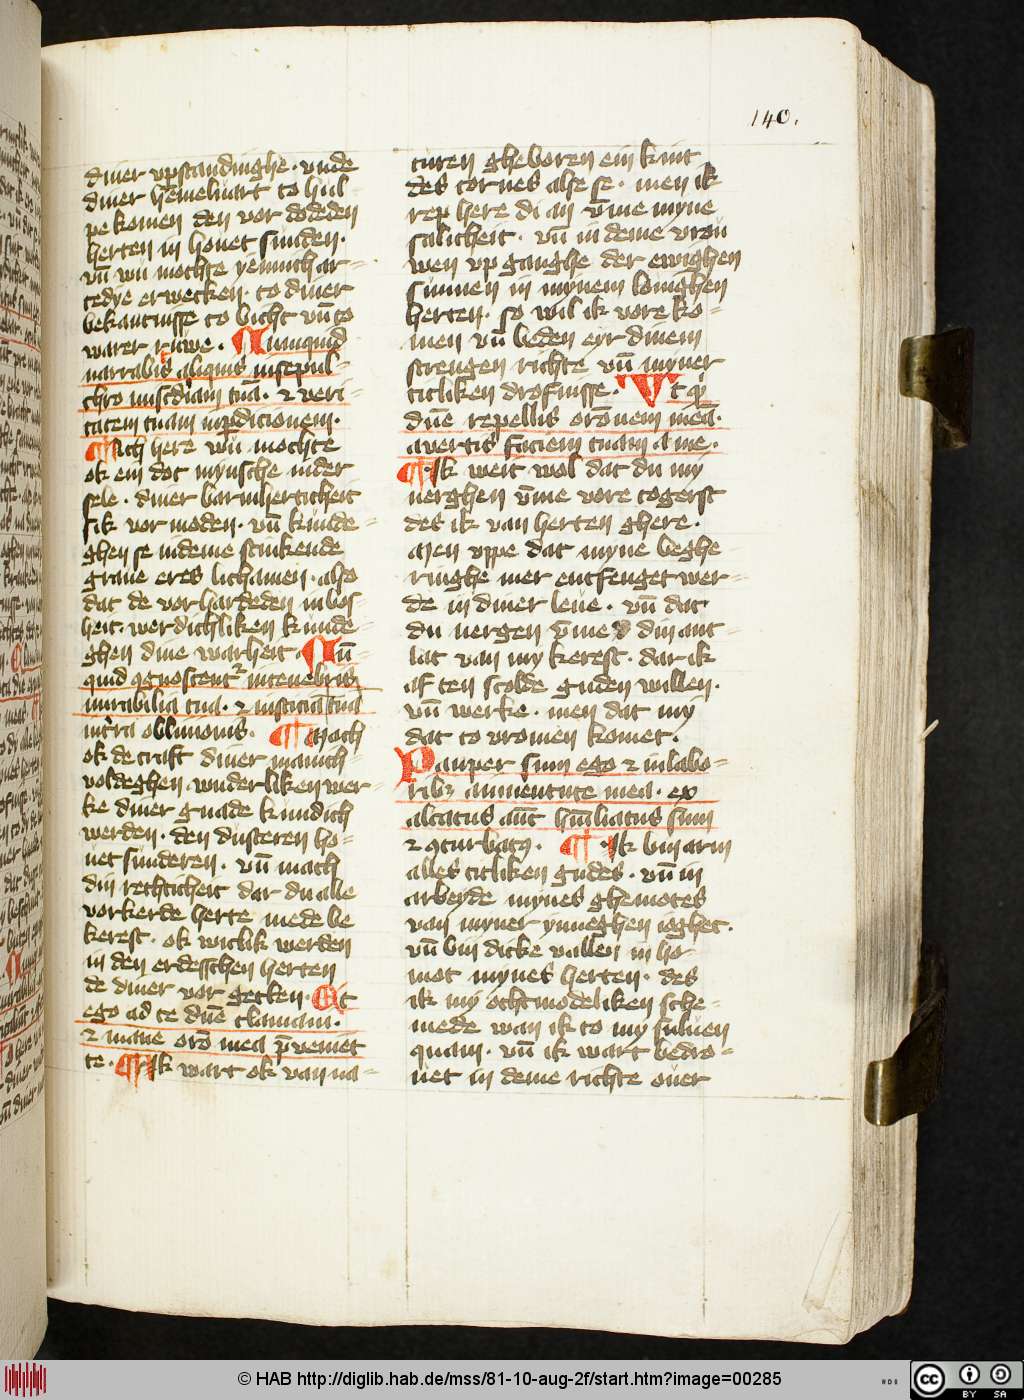 140.
diner vpstandinghe · vnde
diner hemeluart to hul-
pe komen den vor dodeden
herten in houet sunden ·
vn̄ wu mochte yēmnich ar-
tedye erwecken · to diner
bekantnisse to bicht vn̄ to
warer rǔwe · Numquid
narrabit aliquis in sepul-
chro misc̄diam tuā · ⁊ veri-
tatem tuam in p̄dicionem ·
¶ Ach here wu mochte
ok ein dot mynsche in der
sele · diner barmherticheit
sik vor moden · vn̄ kunde-
ghen se in deme stinkende
graue eres lichamen · also
dat de vor hardeden in bos-
heit · werdichliken kunde-
ghen dine warheit · Nū-
quid ꝯgnoscent᷑ in tenebris
mirabilia tua · ⁊ iusticia tua
in tr̄ra obliuionis · ¶ Mach
ok de craft diner mannich-
voldeghen wnderliken wer-
ke diner gnade kundich
werden · den dusteren ho-
uet sunderen · vn̄ mach
din rechticheit dar du alle
vorkerde herte mede be
kerest · ok witlik werden
in den erdesschen herten
de diner vor geten · Et
ego ad te dn̄e clamaui ·
⁊ mane orō mea p̄veniet
te · ¶ Ik wart ok van na-
turen gheboren ein kint
des tornes alse se · men ik
rep here di an v̄me myne
salicheit · vn̄ in deme vrou
wen vp ganghe der ewighen
sunnen in mynem lonighen
herten · so wil ik vore ko-
men vn̄ beden eyr dinem
strengen richte vn̄ myner
titliken drofnisse · Vt qͥ
dn̄e repellis orōnem meā ·
avertis faciem tuam a me ·
¶ Ik weit wol dat du my
nerghen v̄me vore togerst
des ik van herten ghere ·
Men vppe dat myne beghe-
ringhe mer entfenget wer-
de in diner leue · vn̄ dat
du nergen v̄me din ant-
lat van my kerest · dar ik
af ten scolde guden willen ·
vn̄ werke · men dat my
dat to vromen komet ·
Pauper sum ego ⁊ in labo-
ribꝫ a iuuentute mea · ex
altatus aūt hūiliatus sum
⁊ ꝯturbatꝰ · ¶ Ik bin arm
alles titliken gudes · vn̄ in
arbeyde mynes ghemotes
van myner yuneghen ioghet ·
vn̄ bin dicke vallen in ho
mot mynes herten · des
ik my othmodeliken sche-
mede wan ik to my suluen
quam · vn̄ ik wart bedro-
uet in deme richte ouer
© HAB http://diglib.hab.de/mss/81-10-aug-2f/start.htm?image=00285
HAB
cc
BY SA